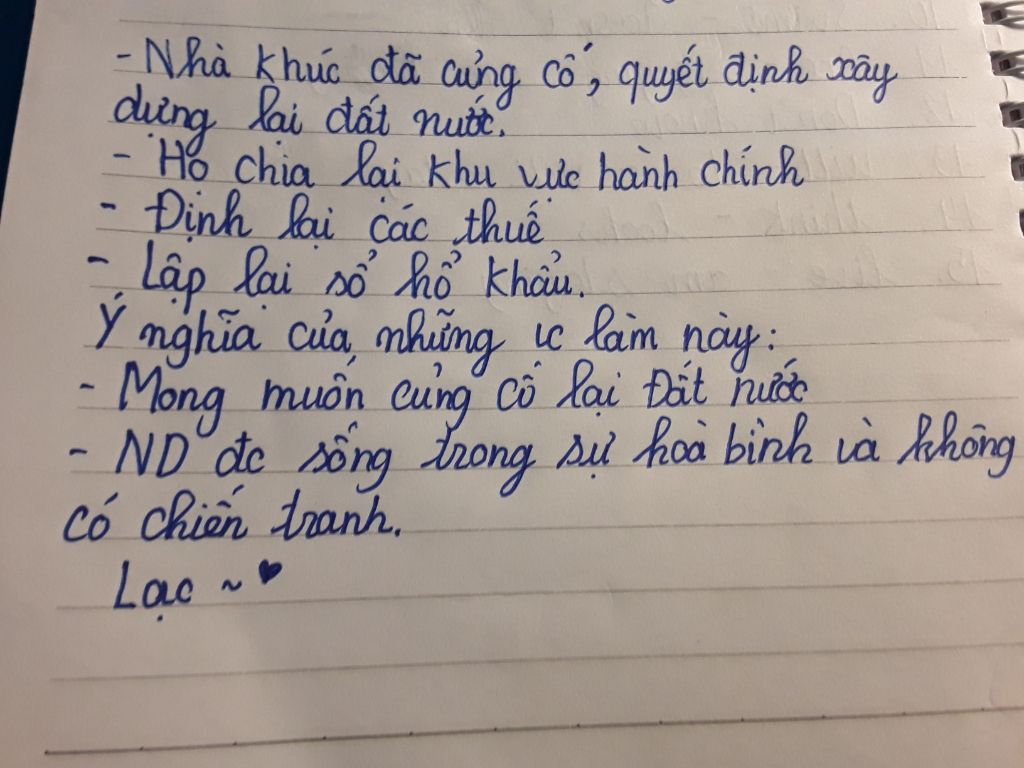 - Nhà khúc đã củng cố, quyết định xây
dựng lại đất nước.
- Họ chia lại khu vực hành chính
- Định lại các thuế
- Lập lại sổ hổ khẩu.
Ý nghĩa của những vc làm này:
- Mong muốn củng cố lại Đất nước
- ND đc sống trong sự hoà bình và không
có chiến tranh.
Lạc ~ ♥